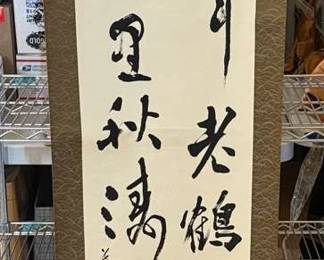 年老鶴
里秋濤